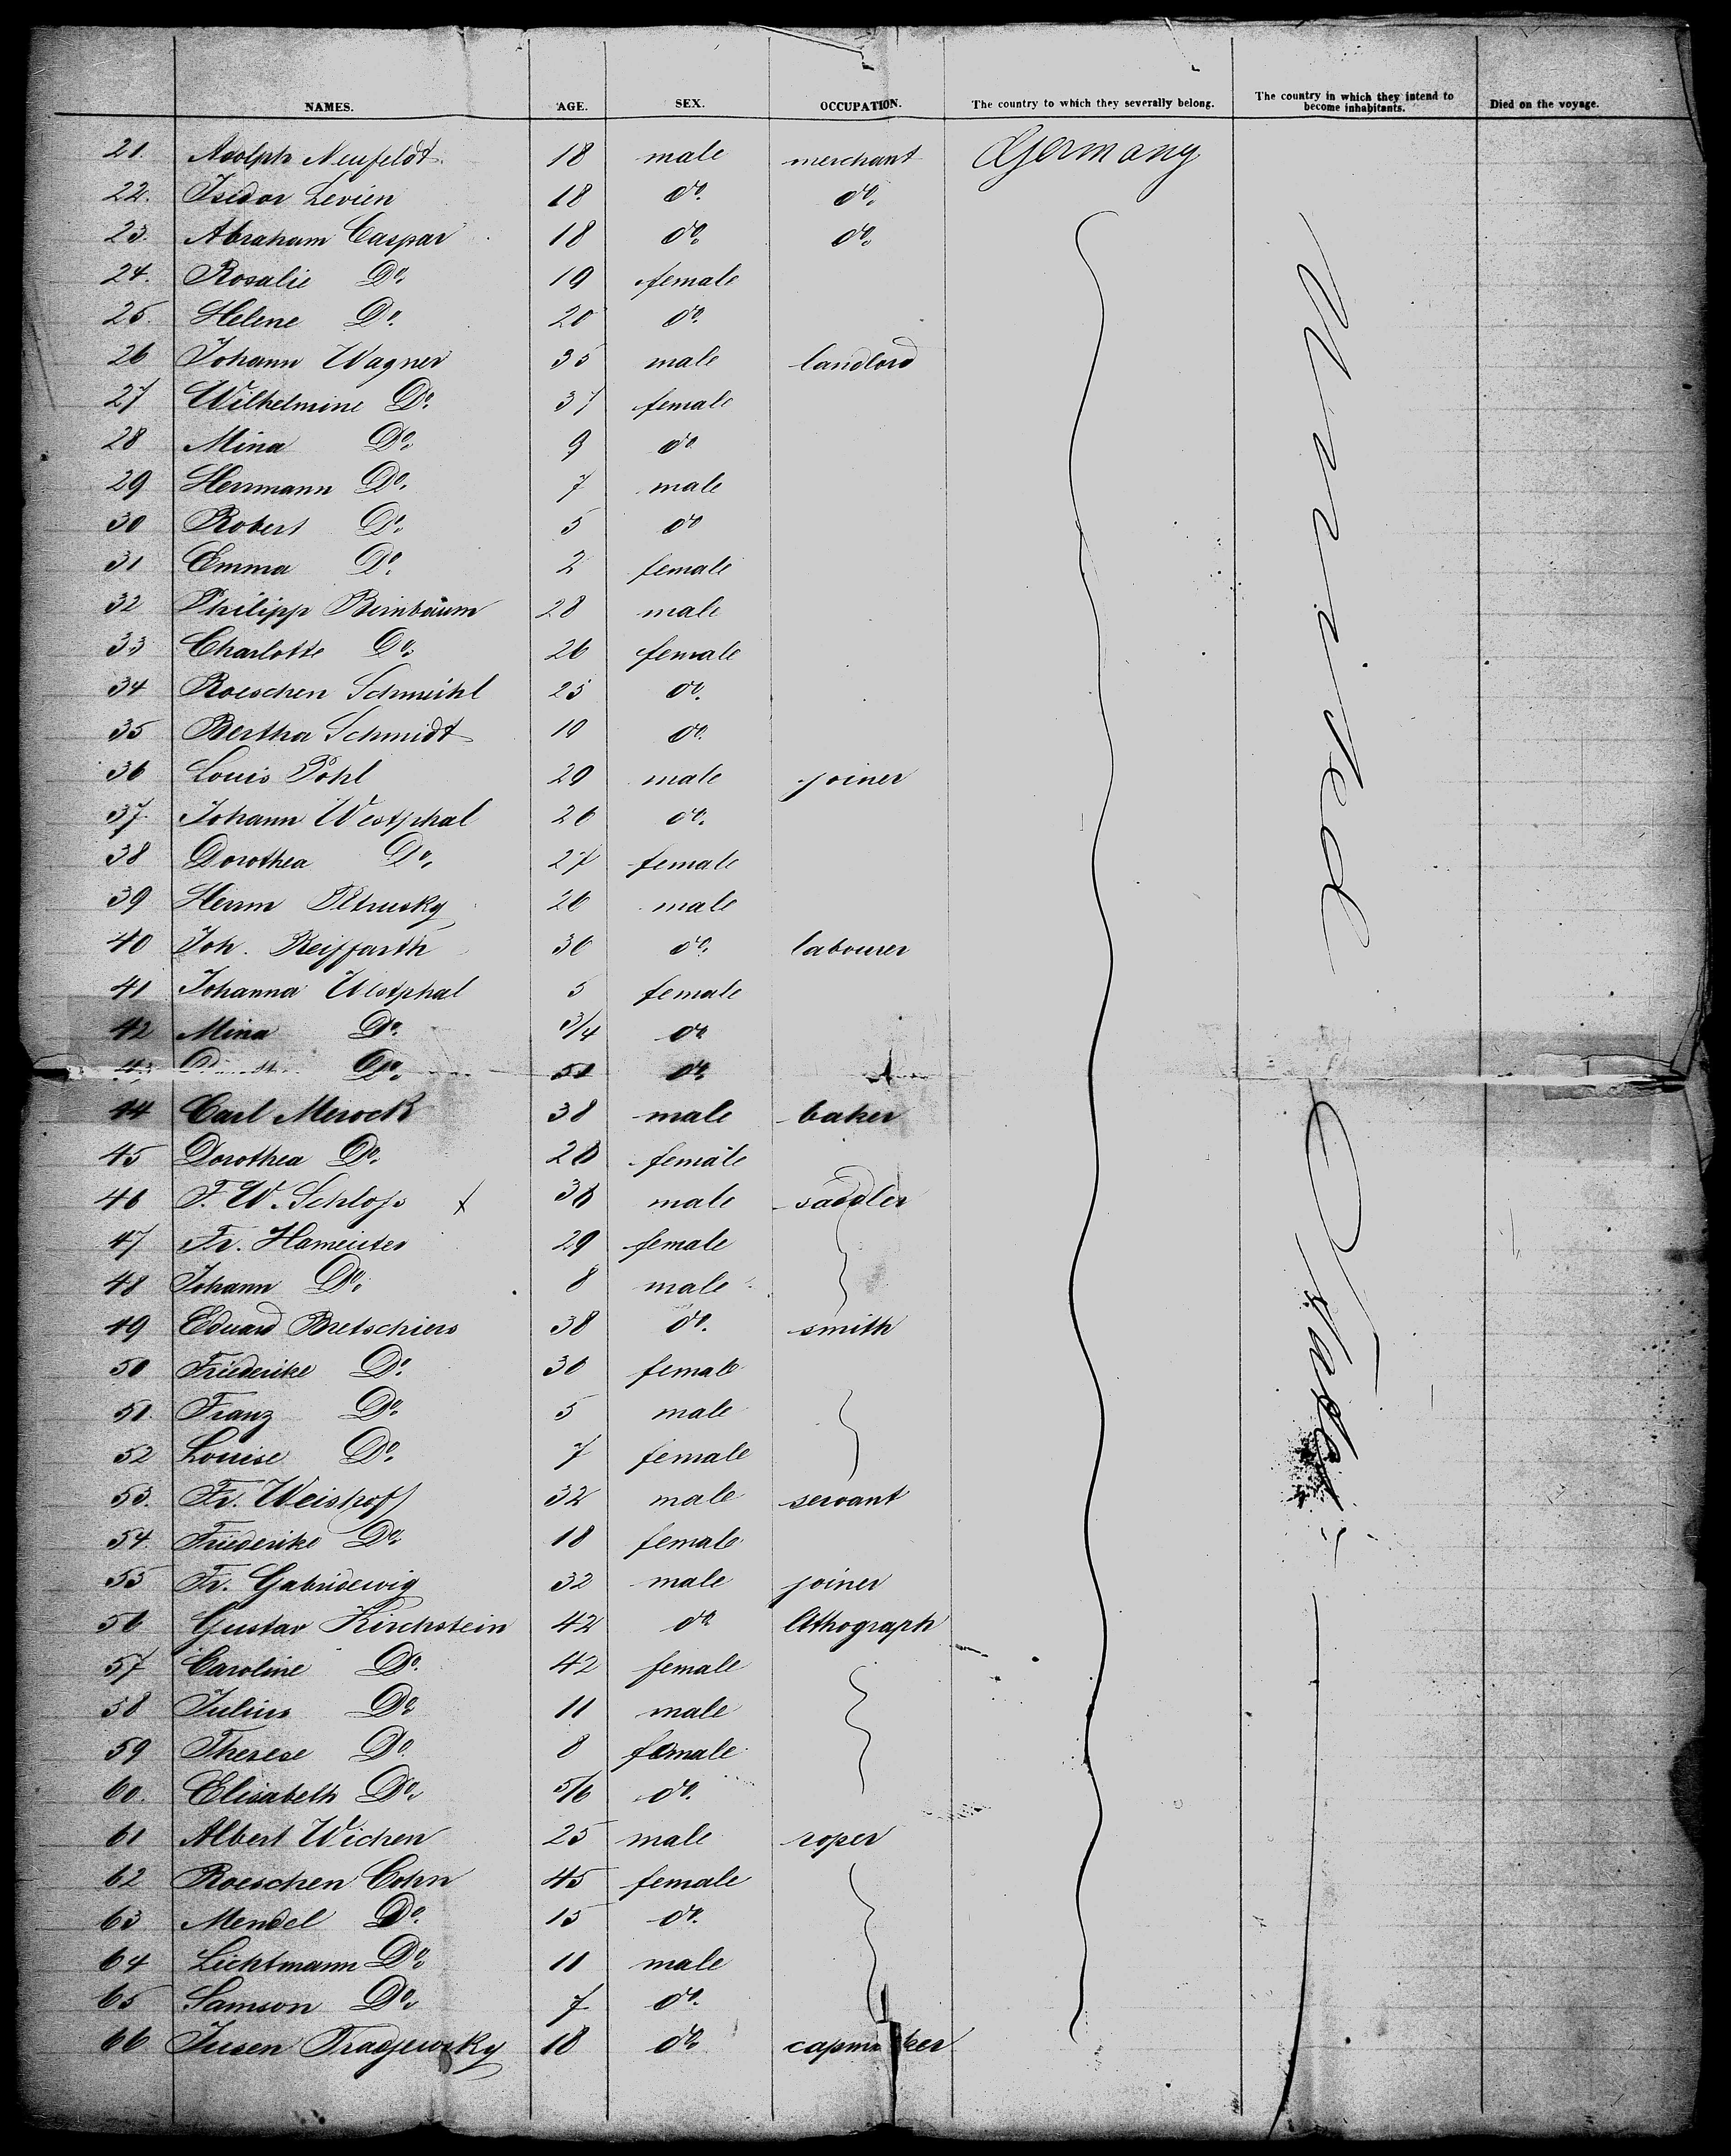 NAMES. AGE. SEX. OCCUPATION. The country to which they severally belong. The country in which they intend to become inhabitants. Died on the voyage.
21. Adolph Neufeldt. 18 male merchant Germany
22. Isidor Levien 18 do. do.
23. Abraham Caspar 18 do. do.
24. Rosalie Do. 19 female
25. Helene Do. 20 do.
26 Johann Wagner 35 male landlord
27 Wilhelmine Do. 37 female
28 Mina Do. 9 do
29 Herrmann Do. 7 male
30 Robert Do. 5 do
31 Emma Do. 2 female
32 Philipp Birnbaum 28 male
33 Charlotte Do. 26 female
34 Roeschen Schmühl 25 do.
35 Bertha Schmidt 19 do.
36 Louis Pohl 29 male joiner
37. Johann Westphal 26 do.
38 Dorothea Do. 27 female
39 Herrm Petrusky 26 male
40 Joh. Reiffarth 36 do. labourer
41 Johanna Westphal 5 female
42 Mina Do. 3/4 do
43 Do. 51 do.
44 Carl Merock 38 male baker
45 Dorothea Do. 28 female
46 F. W. Schloss x 38 male saddler
47 Fr. Hameister 29 female
48 Johann Do. 8 male
49 Eduard Bretschiers 38 do. smith
50 Friederike Do. 36 female
51. Franz Do. 5 male
52 Louise Do. 7 female
53. Fr. Weishoff 32 male servant
54. Friederike Do. 18 female
55 Fr. Gabridewig 32 male joiner
56 Gustav Kirchstein 42 do lithograph
57 Caroline Do. 42 female
58 Julius Do. 11 male
59 Therese Do. 8 female
60. Elisabeth Do. 5/6 do.
61 Albert Wichen 25 male roper
62 Roeschen Cohn 45 female
63 Mendel Do. 15 do.
64 Lichtmann Do. 11 male
65 Samson Do. 7 do.
66 Jusen Tradjewsky 18 do. capmaker
United States.